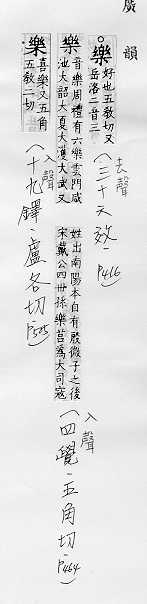 廣韻
樂
好也五敎切又
岳洛二音三
去聲
(三十六效·P416)
樂
音樂周禮有六樂雲門咸
池大韶大夏大濩大武又
姓出南陽本自有殷微子之後
宋戴公四世孫樂莒爲大司寇
入聲
(四覺·五角切·P464)
樂
喜樂又五角
五敎二切
入聲
(十九鐸·盧各切·P505)